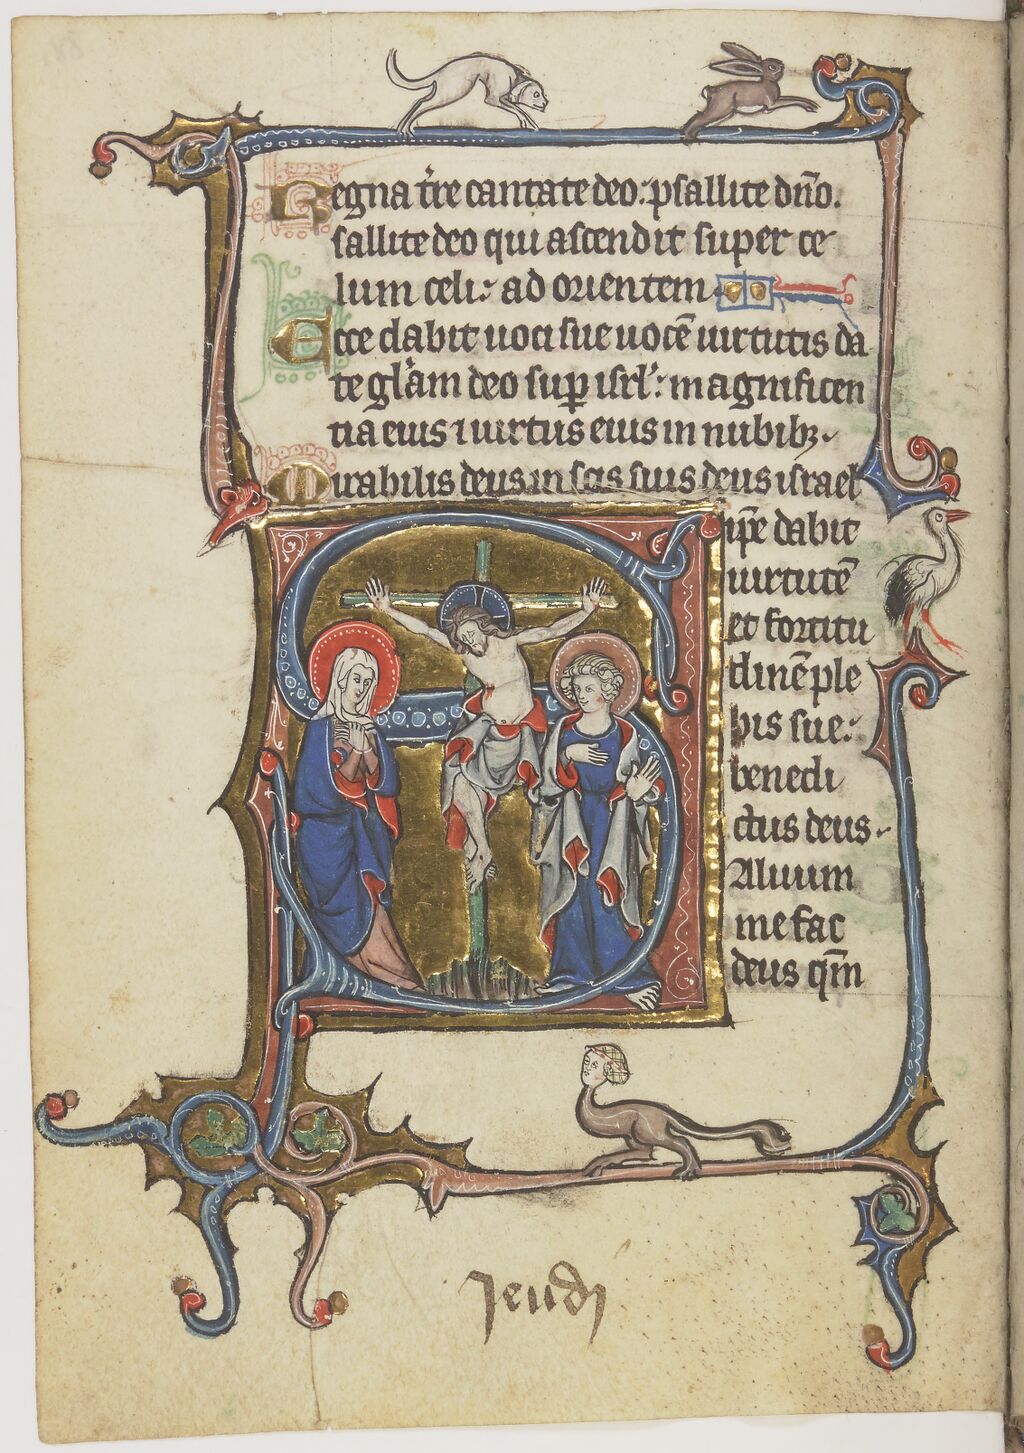 Regna tr̄re cantate deo : psallite dn̄o.
sallite deo qui ascendit super ce
lum celi : ad orientem
Ecce dabit uoci sue uocē uirtutis da
te gl̄am deo sup̄ isrl̄ : magnificen
tia eius ⁊ uirtus eius in nubibꝫ
Mirabilis deus in sc̄is suis deus israel
ip̄e dabit
uirtutē
et fortitu
dinē ple
bis sue :
benedi
ctus deus
aluum
me fac
deus qm̄
jeudi